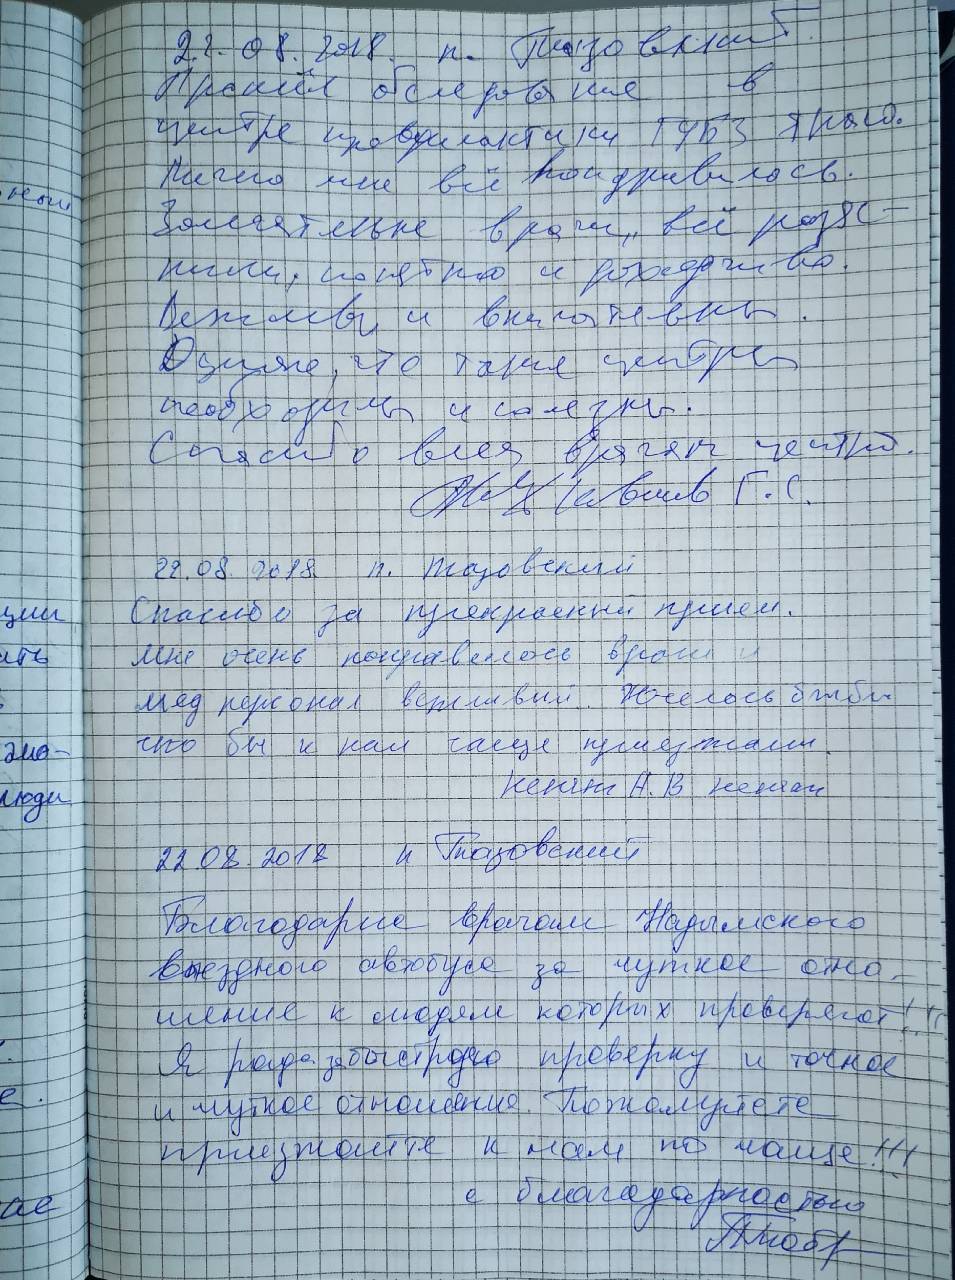 22.08.2018. п. Тазовский.
Прошёл обследование в
центре профилактики ГУБЗ ЯНАО.
Лично мне всё понравилось.
Замечательные врачи, всё разъяс-
нили, понятно и доходчиво.
Вежливы и внимательны.
что такие центры
необходимы и полезны.
Спасибо всем врачам центра.
Г.С.
22.08.2018 п. Тазовский
Спасибо за прекрасный прием.
Мне очень понравелось врачи и
мед персонал вежливый. Хотелось бы
что бы к нам чаще приезжали.
А.В
22.08.2018 п Тазовский
Благодарю врачам Надымского
выездного автобуса за чуткое отно
шение к людям которых проверяют!!!
Я рада за быструю проверку и точное
и чуткое отношение. Пожалуйсте
приезжайте к нам по чаще!!!
с благодарностью
ным
ции
ать
эмо-
люди
е.
ае